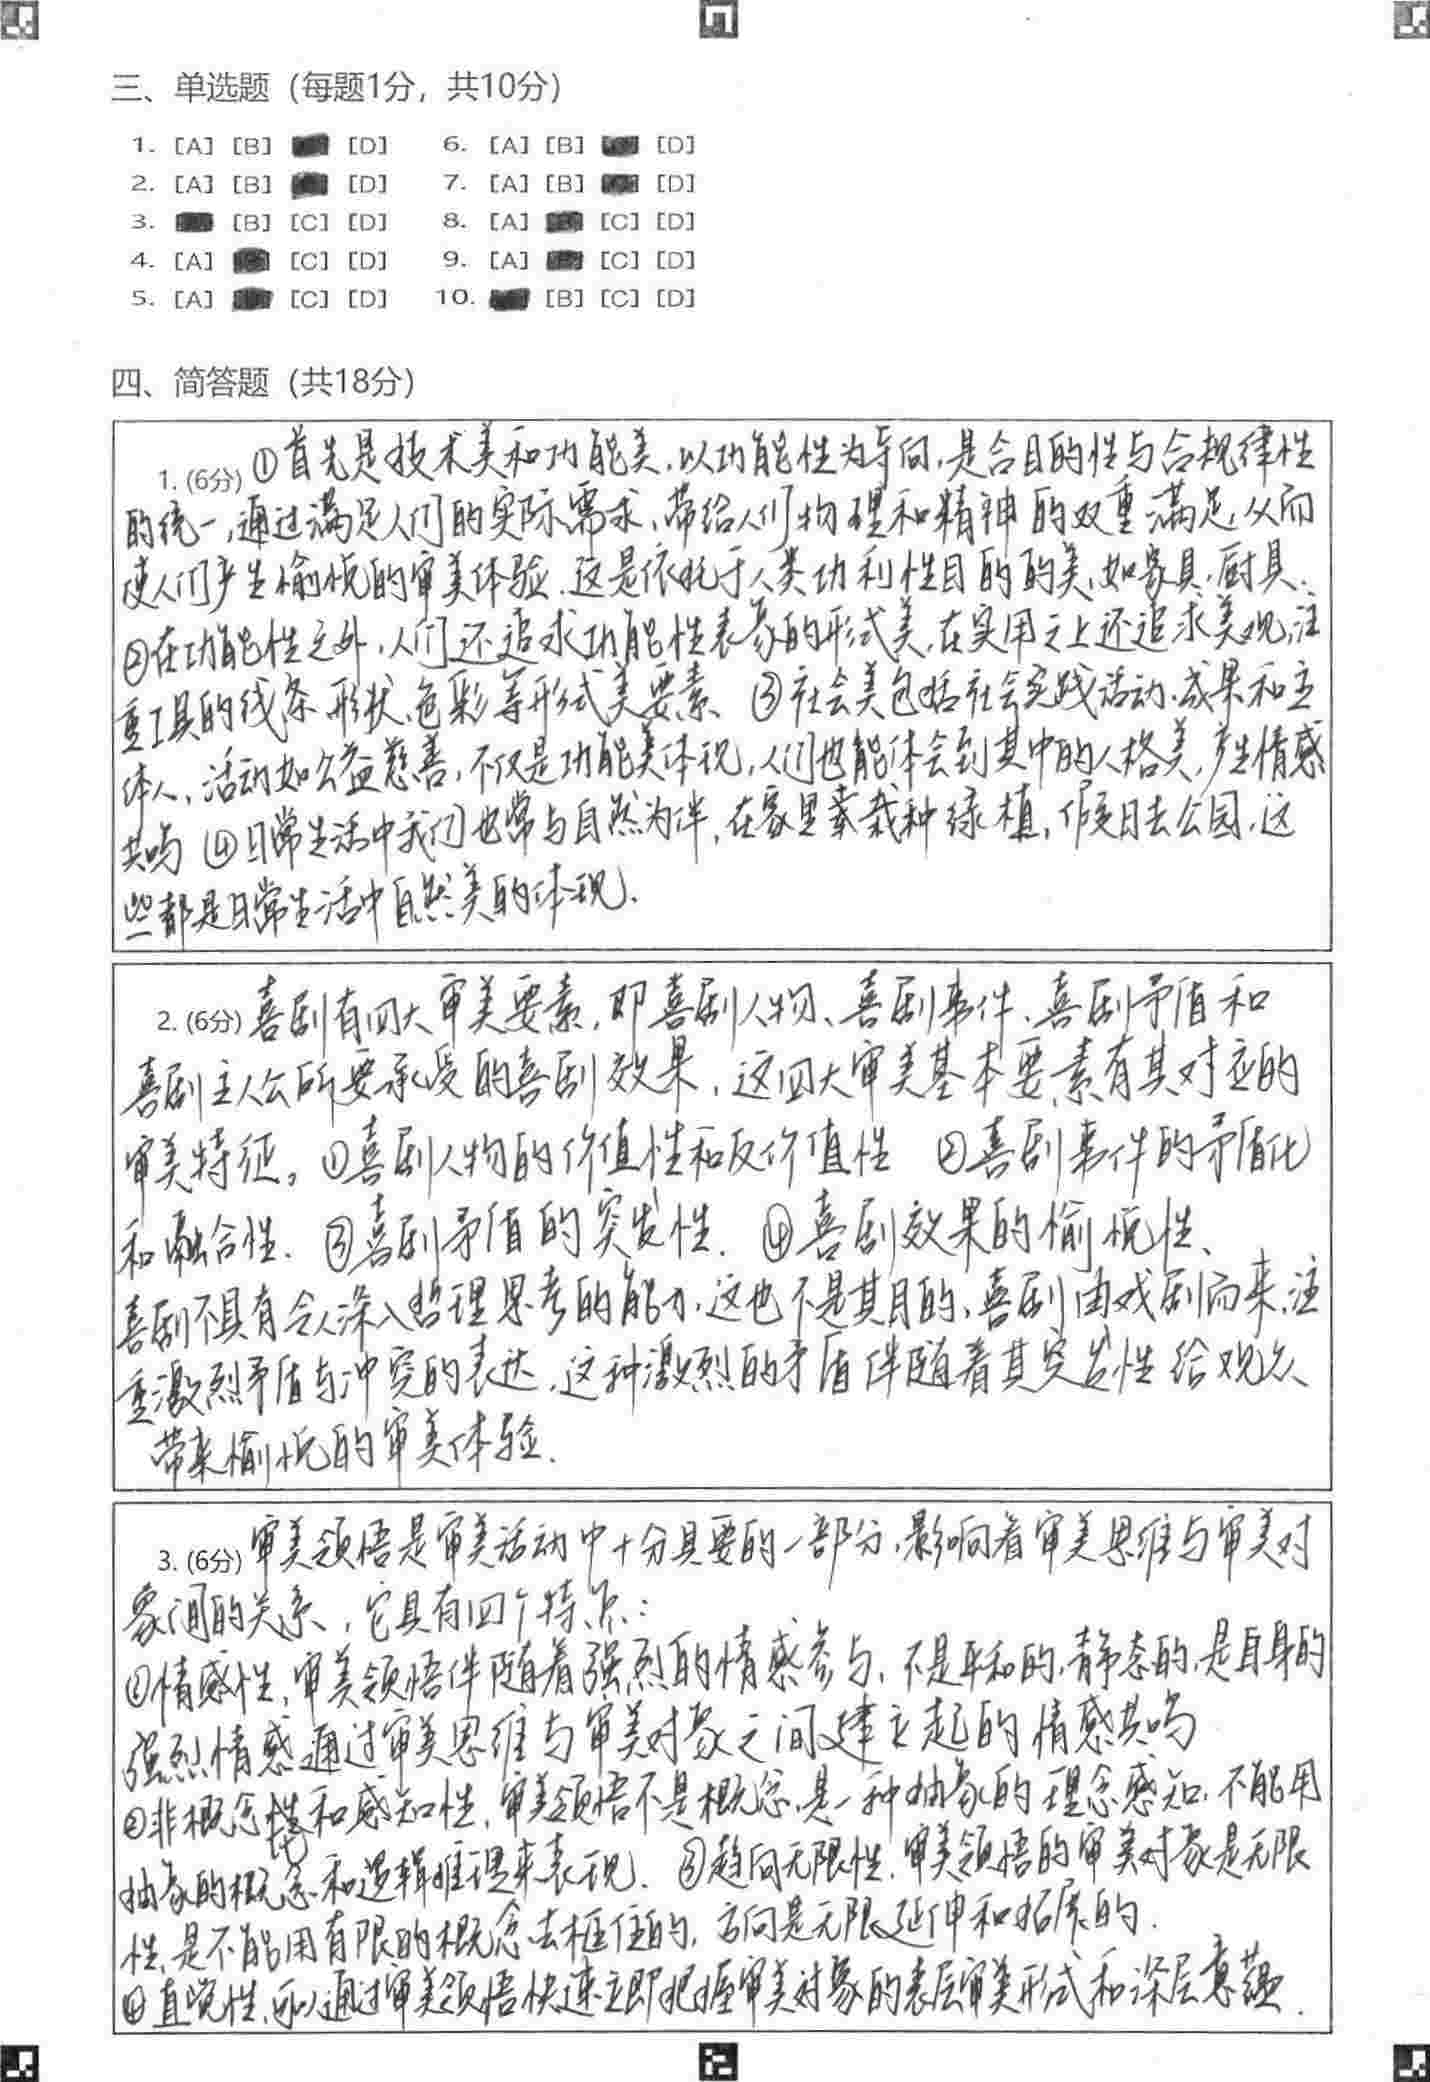 三、单选题（每题1分，共10分）
1. [A] [B] [D] 6. [A] [B] [D]
2. [A] [B] [D] 7. [A] [B] [D]
3. [B] [C] [D] 8. [A] [C] [D]
4. [A] [C] [D] 9. [A] [C] [D]
5. [A] [C] [D] 10. [B] [C] [D]
四、简答题（共18分）
1. (6分) ①首先是技术美和功能美，以功能性为导向，是合目的性与合规律性
的统一，通过满足人们的实际需求，带给人们物理和精神的双重满足，从而
使人们产生愉悦的审美体验．这是依托于人类功利性目的的美，如家具，厨具．
②在功能性之外，人们还追求功能性表象的形式美，在实用之上还追求美观，注
重工具的线条、形状、色彩等形式美要素、 ③社会美包括社会实践活动、成果和主
体人，活动如公益慈善，不仅是功能美体现，人们也能体会到其中的人格美，产生情感
共鸣 ④日常生活中我们也常与自然为伴，在家里栽种绿植，假日去公园，这
些都是日常生活中自然美的体现．
2. (6分) 喜剧有四大审美要素，即喜剧人物、喜剧事件、喜剧矛盾和
喜剧主人公所要承受的喜剧效果，这四大审美基本要素有其对应的
审美特征。①喜剧人物的价值性和反价值性 ②喜剧事件的矛盾化
和融合性． ③喜剧矛盾的突发性． ④喜剧效果的愉悦性、
喜剧不具有令人深入哲理思考的能力，这也不是其目的，喜剧由戏剧而来，注
重激烈矛盾与冲突的表达，这种激烈的矛盾伴随着其突发性给观众
带来愉悦的审美体验．
3. (6分) 审美领悟是审美活动中十分具要的一部分，影响着审美思维与审美对
象间的关系，它具有四个特点：
①情感性，审美领悟伴随着强烈的情感参与，不是平和的，静态的，是自身的
强烈情感通过审美思维与审美对象之间建立起的情感共鸣
②非概念性和感知性，审美领悟不是概念，是一种抽象的理念感知，不能用
抽象的概念和逻辑推理来表现． ③趋向无限性，审美领悟的审美对象是无限
性，是不能用有限的概念去框住的，方向是无限延伸和拓展的．
④直觉性，可以通过审美领悟快速立即把握审美对象的表层审美形式和深层意蕴．